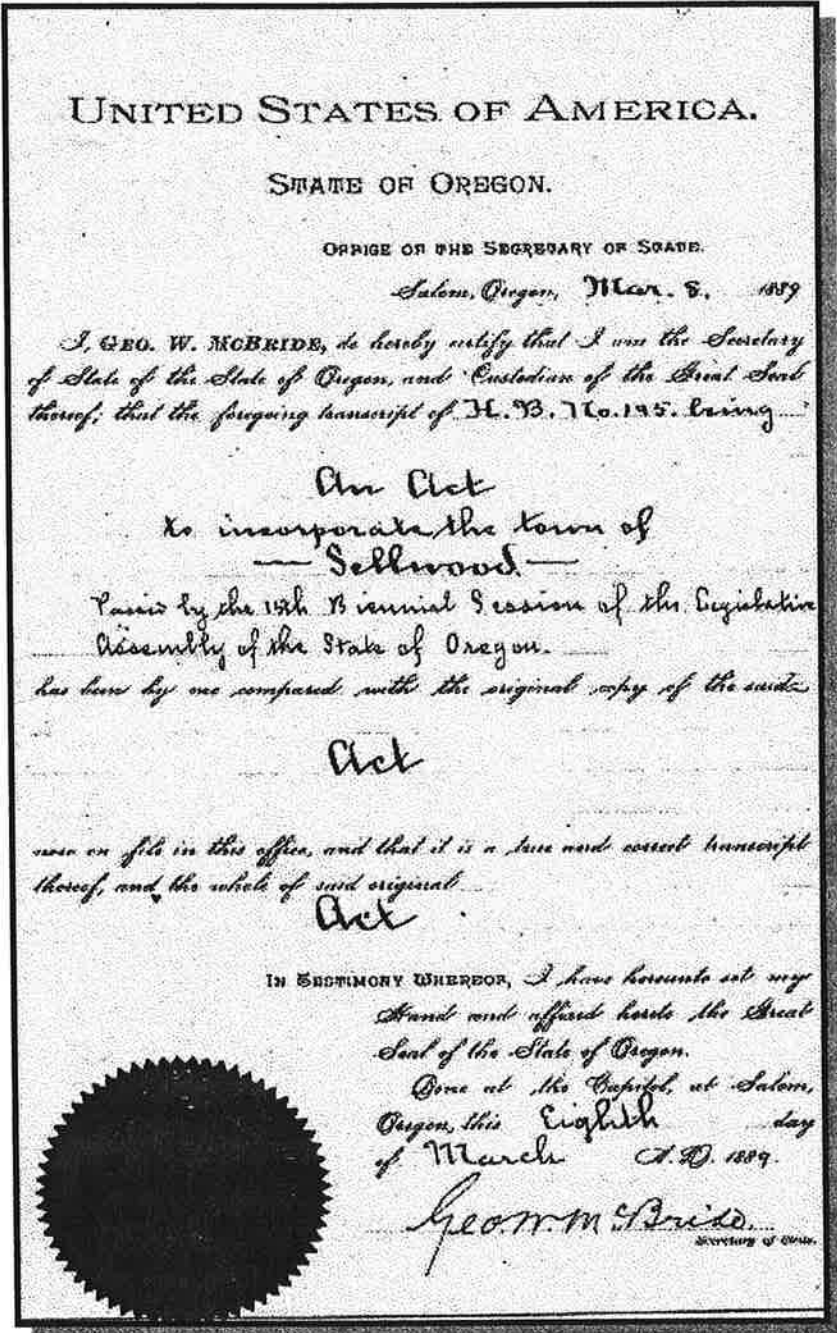 UNITED STATES OF AMERICA.
STATE OF OREGON.
OFFICE OF THE SECRETARY OF STATE.
Salem, Oregon, Mar. 8, 1889
I, GEO. W. McBRIDE, do hereby certify that I am the Secretary
of State of the State of Oregon, and Custodian of the Great Seal
thereof; that the foregoing transcript of H. B. No. 195. being
An Act
to incorporate the town of
— Sellwood —
Passed by the 15th Biennial Session of the Legislative
Assembly of the State of Oregon.
has been by me compared with the original copy of the said
Act
now on file in this office, and that it is a true and correct transcript
thereof, and the whole of said original
Act
IN TESTIMONY WHEREOF, I have hereunto set my
Hand and affixed hereto the Great
Seal of the State of Oregon.
Done at the Capitol, at Salem,
Oregon, this Eighth day
of March A. D. 1889.
Geo. W. McBride.
Secretary of State.